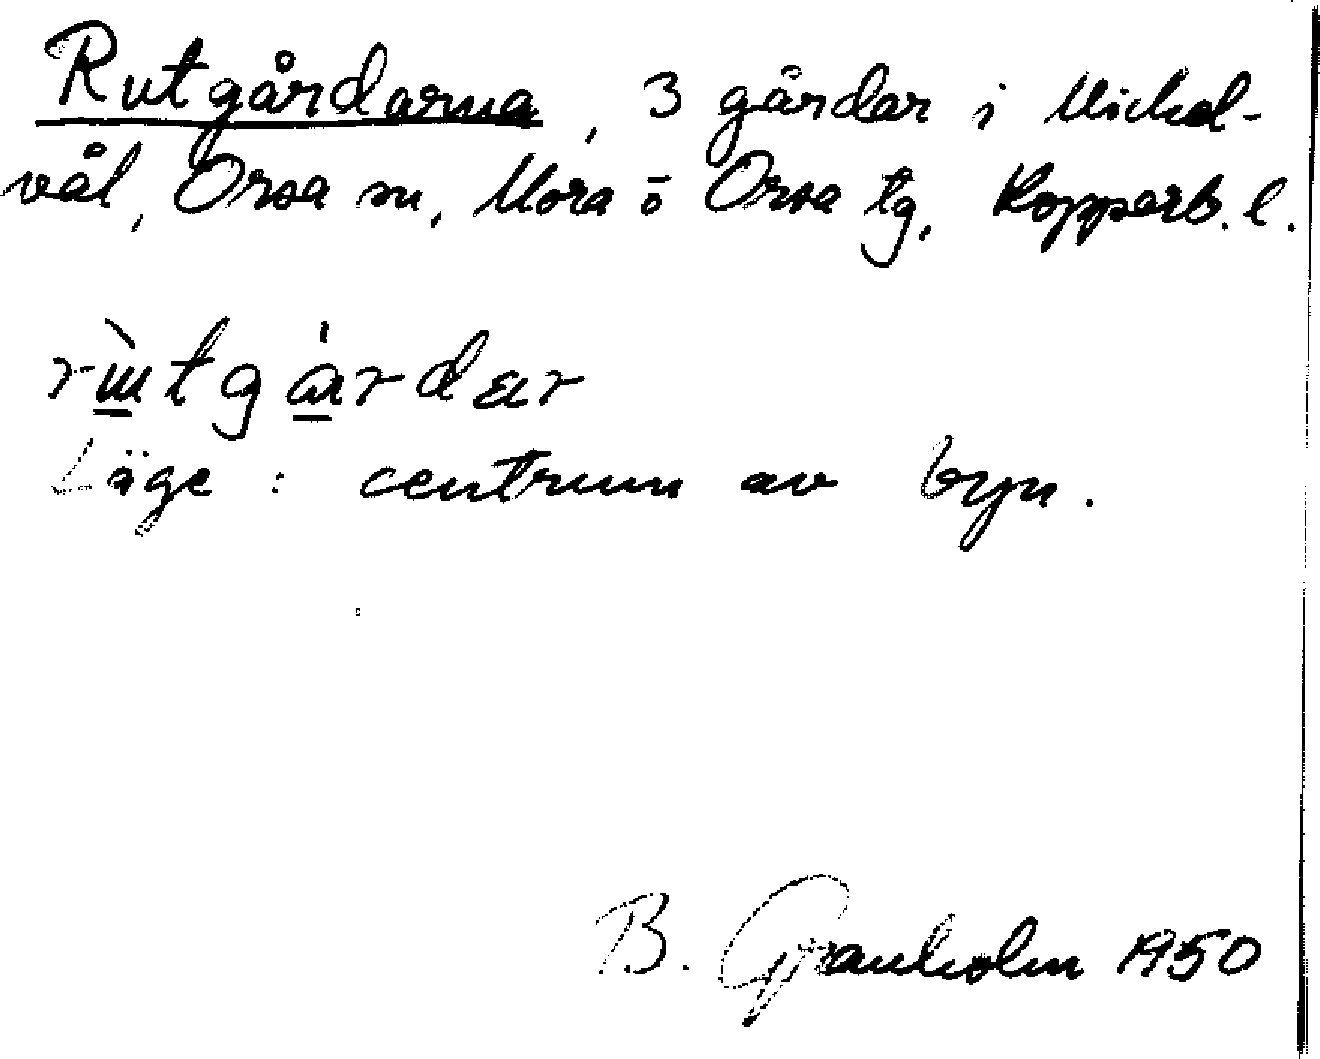 Rutgårdarna, 3 gårdar i Mickel-
vål, Orsa sn, Mora o Orsa tg, Kopparb. l.
Läge : centrum av byn.
B. Granholm 1950